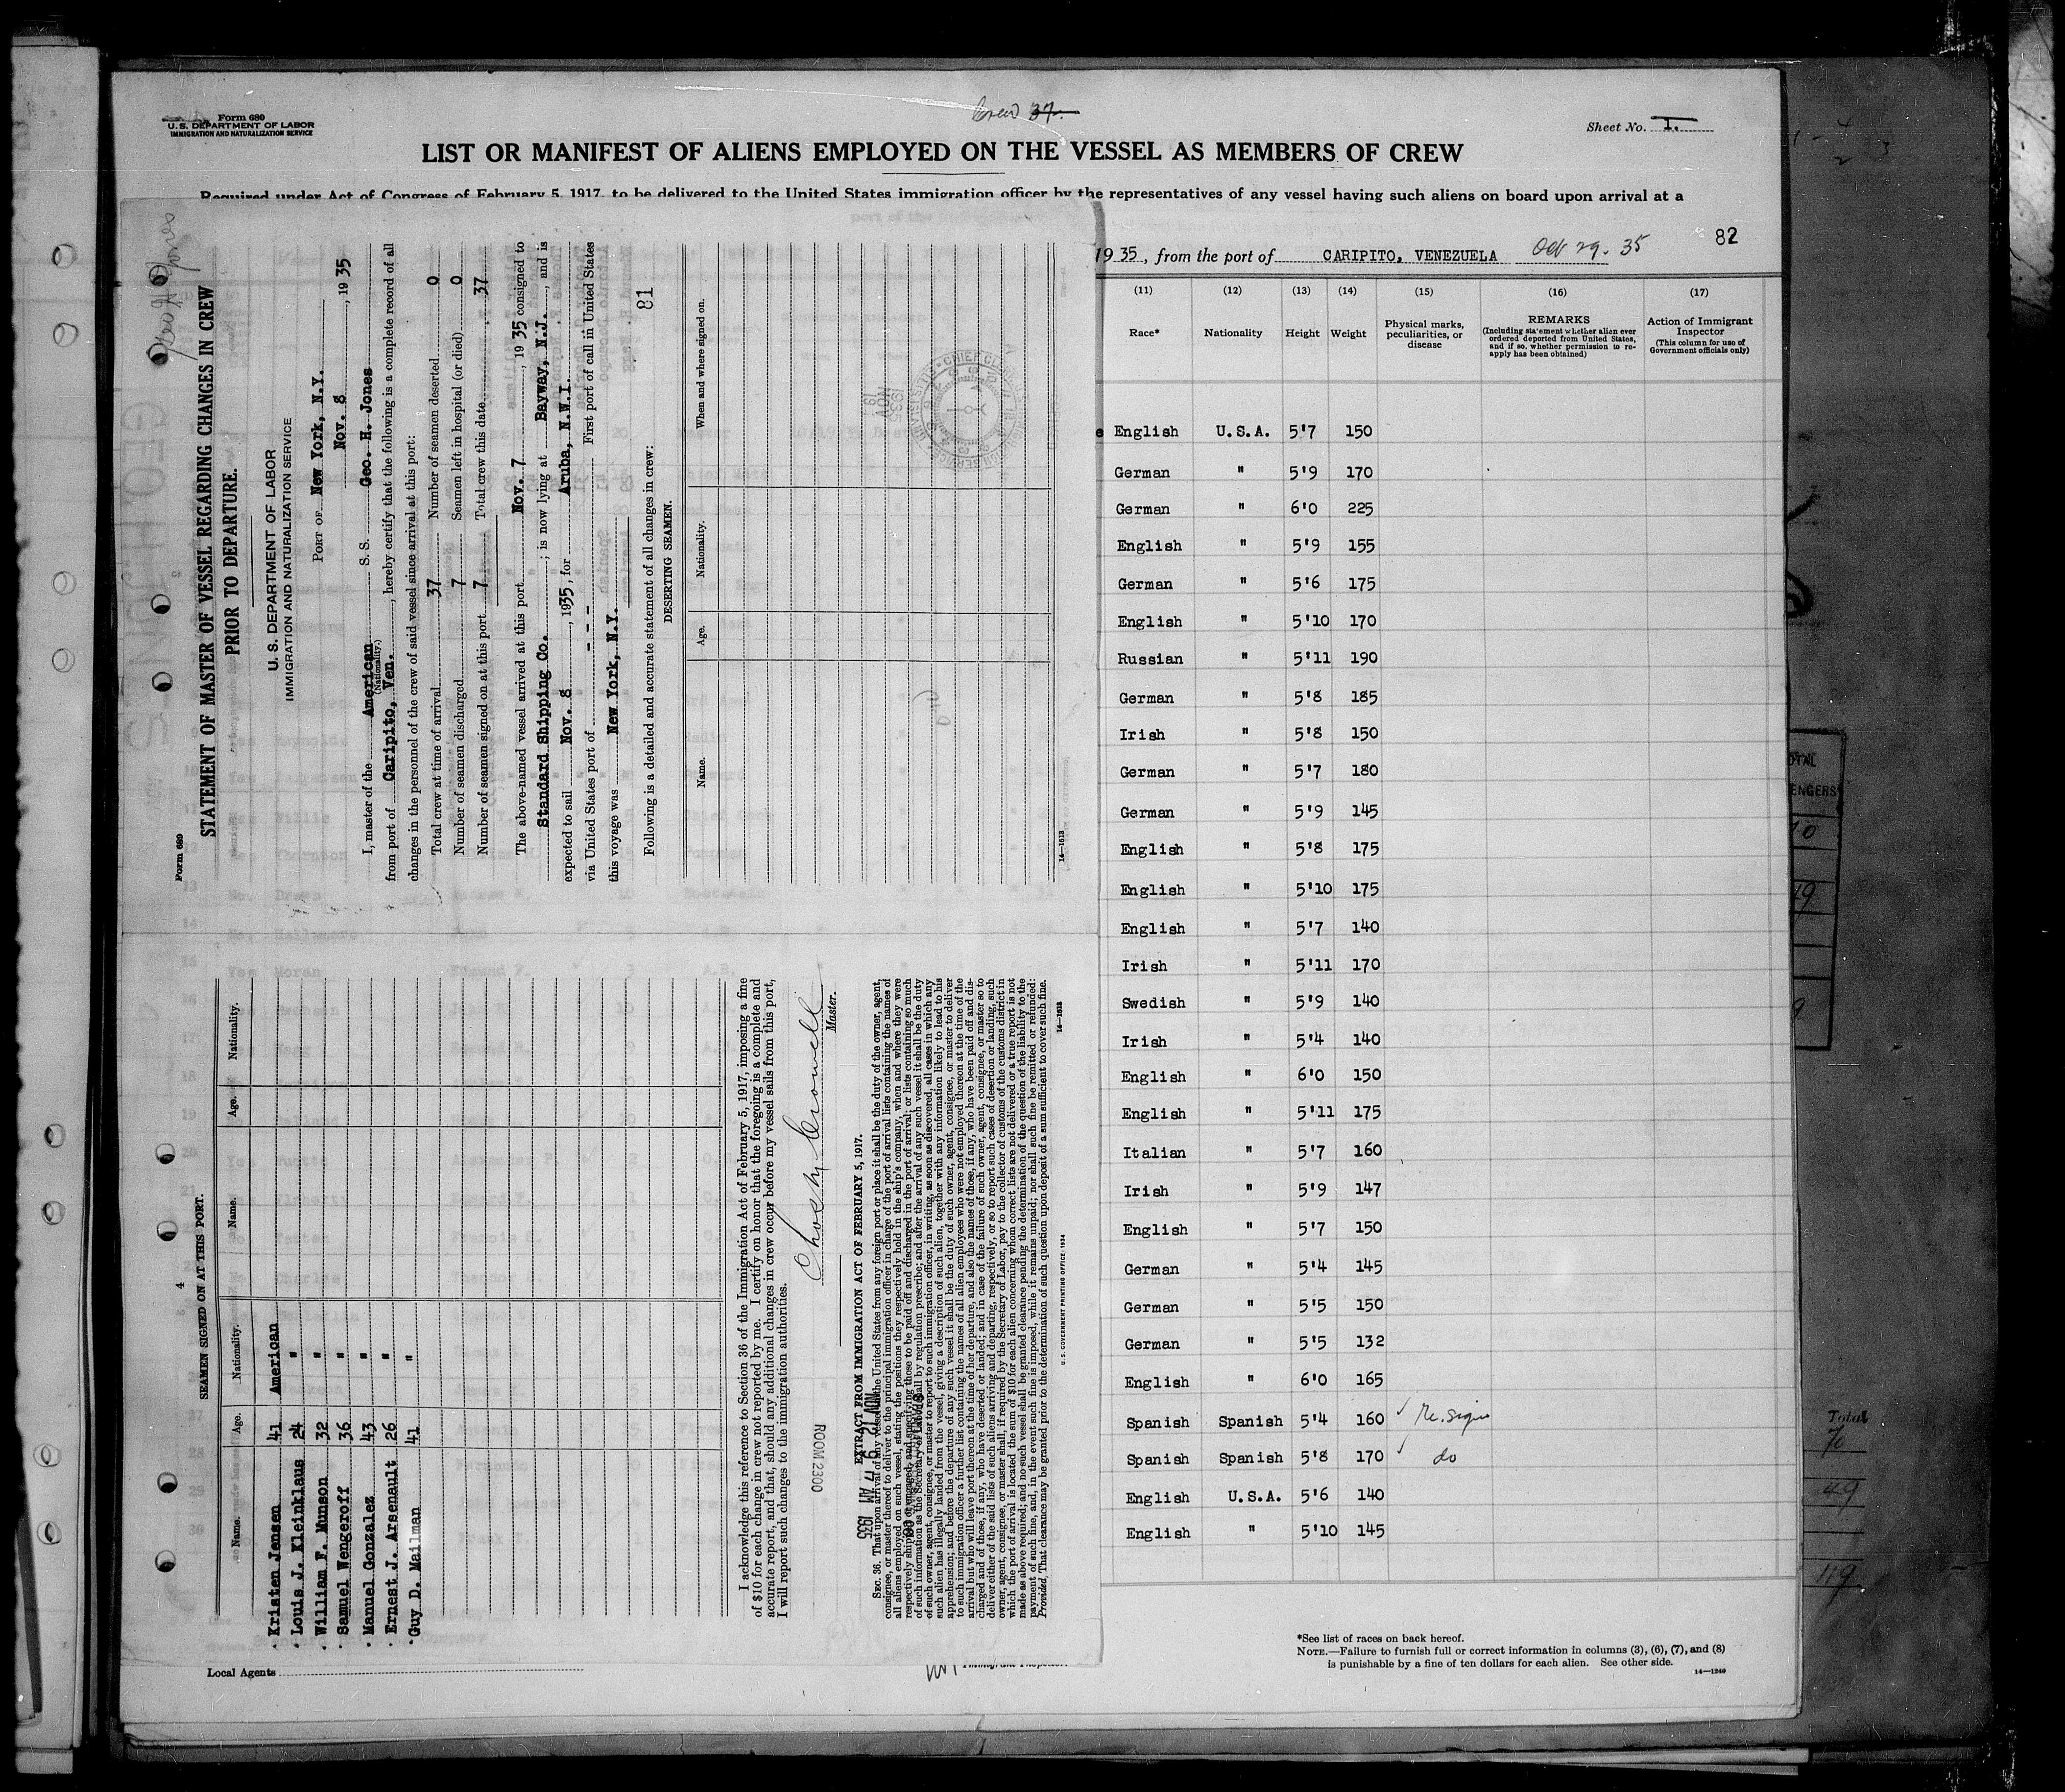 Form 680
U.S. DEPARTMENT OF LABOR
IMMIGRATION AND NATURALIZATION SERVICE
Crew 37
Sheet No. I.
LIST OR MANIFEST OF ALIENS EMPLOYED ON THE VESSEL AS MEMBERS OF CREW
Required under Act of Congress of February 5, 1917, to be delivered to the United States immigration officer by the representatives of any vessel having such aliens on board upon arrival at a
82
19 35, from the port of CARIPITO, VENEZUELA Oct 29. 35
(11) (12) (13) (14) (15) (16) (17)
Race* Nationality Height Weight Physical marks, peculiarities, or disease REMARKS (Including statement whether alien ever ordered deported from United States, and if so, whether permission to reapply has been obtained) Action of Immigrant Inspector (This column for use of Government officials only)
English U.S.A. 5'7 150
German " 5'9 170
German " 6'0 225
English " 5'9 155
German " 5'6 175
English " 5'10 170
Russian " 5'11 190
German " 5'8 185
Irish " 5'8 150
German " 5'7 180
German " 5'9 145
English " 5'8 175
English " 5'10 175
English " 5'7 140
Irish " 5'11 170
Swedish " 5'9 140
Irish " 5'4 140
English " 6'0 150
English " 5'11 175
Italian " 5'7 160
Irish " 5'9 147
English " 5'7 150
German " 5'4 145
German " 5'5 150
German " 5'5 132
English " 6'0 165
Spanish Spanish 5'4 160 ✓ Re. sign
Spanish Spanish 5'8 170 ✓ do
English U.S.A. 5'6 140
English " 5'10 145
*See list of races on back hereof.
NOTE.—Failure to furnish full or correct information in columns (3), (6), (7), and (8)
is punishable by a fine of ten dollars for each alien. See other side.
14—1240
Local Agents
Form 689
Geo H Jones
STATEMENT OF MASTER OF VESSEL REGARDING CHANGES IN CREW
PRIOR TO DEPARTURE.
U. S. DEPARTMENT OF LABOR
IMMIGRATION AND NATURALIZATION SERVICE
PORT OF New York, N.Y.
Nov. 8, 19 35
I, master of the American S. S. Geo. H. Jones
(Nationality.)
from port of Caripito, Ven., hereby certify that the following is a complete record of all
changes in the personnel of the crew of said vessel since arrival at this port:
Total crew at time of arrival 37 Number of seamen deserted 0
Number of seamen discharged 7 Seamen left in hospital (or died) 0
Number of seamen signed on at this port 7 Total crew this date 37
The above-named vessel arrived at this port Nov. 7, 19 35 consigned to
Standard Shipping Co.; is now lying at Bayway, N.J., and is
expected to sail Nov. 8, 1935, for Aruba, N.W.I.
via United States port of - - - First port of call in United States
this voyage was New York, N.Y.
81
Following is a detailed and accurate statement of all changes in crew:
DESERTING SEAMEN.
Name. Age. Nationality. When and where signed on.
14—1813
4
SEAMEN SIGNED ON AT THIS PORT.
Name. Age. Nationality. Name. Age. Nationality.
Kristen Jensen 41 American
Louis J. Kleinklaus 24 "
William F. Munson 32 "
Samuel Wengeroff 36 "
Manuel Gonzalez 43 "
Ernest J. Arsenault 26 "
Guy D. Mailman 41 "
I acknowledge this reference to Section 36 of the Immigration Act of February 5, 1917, imposing a fine
of $10 for each change in crew not reported by me. I certify on honor that the foregoing is a complete and
accurate report, and that, should any additional changes in crew occur before my vessel sails from this port,
I will report such changes to the immigration authorities.
Chas M Crowell
Master.
ROOM 2300
NOV 12 9 17 AM 1935
EXTRACT FROM IMMIGRATION ACT OF FEBRUARY 5, 1917.
SEC. 36. That upon arrival of any vessel in the United States from any foreign port or place it shall be the duty of the owner, agent,
consignee, or master thereof to deliver to the principal immigration officer in charge of the port of arrival lists containing the names of
all aliens employed on such vessel, stating the positions they respectively hold in the ship's company, when and where they were
respectively shipped or engaged, and specifying those to be paid off and discharged in the port of arrival; or lists containing so much
of such information as the Secretary of Labor shall by regulation prescribe; and after the arrival of any such vessel it shall be the duty
of such owner, agent, consignee, or master to report to such immigration officer, in writing, as soon as discovered, all cases in which any
such alien has illegally landed from the vessel, giving a description of such alien, together with any information likely to lead to his
apprehension; and before the departure of any such vessel it shall be the duty of such owner, agent, consignee, or master to deliver
to such immigration officer a further list containing the names of all alien employees who were not employed thereon at the time of the
arrival but who will leave port thereon at the time of her departure, and also the names of those, if any, who have been paid off and dis-
charged and of those, if any, who have deserted or landed; and in case of the failure of such owner, agent, consignee, or master so to
deliver either of the said lists of such aliens arriving and departing, respectively, or so to report such cases of desertion or landing, such
owner, agent, consignee, or master shall, if required by the Secretary of Labor, pay to the collector of customs of the customs district in
which the port of arrival is located the sum of $10 for each alien concerning whom correct lists are not delivered or a true report is not
made as above required; and no such vessel shall be granted clearance pending the determination of the question of the liability to the
payment of such fine, and, in the event such fine is imposed, while it remains unpaid; nor shall such fine be remitted or refunded:
Provided, That clearance may be granted prior to the determination of such question upon deposit of a sum sufficient to cover such fine.
U.S. GOVERNMENT PRINTING OFFICE: 1934
Total
70
49
119